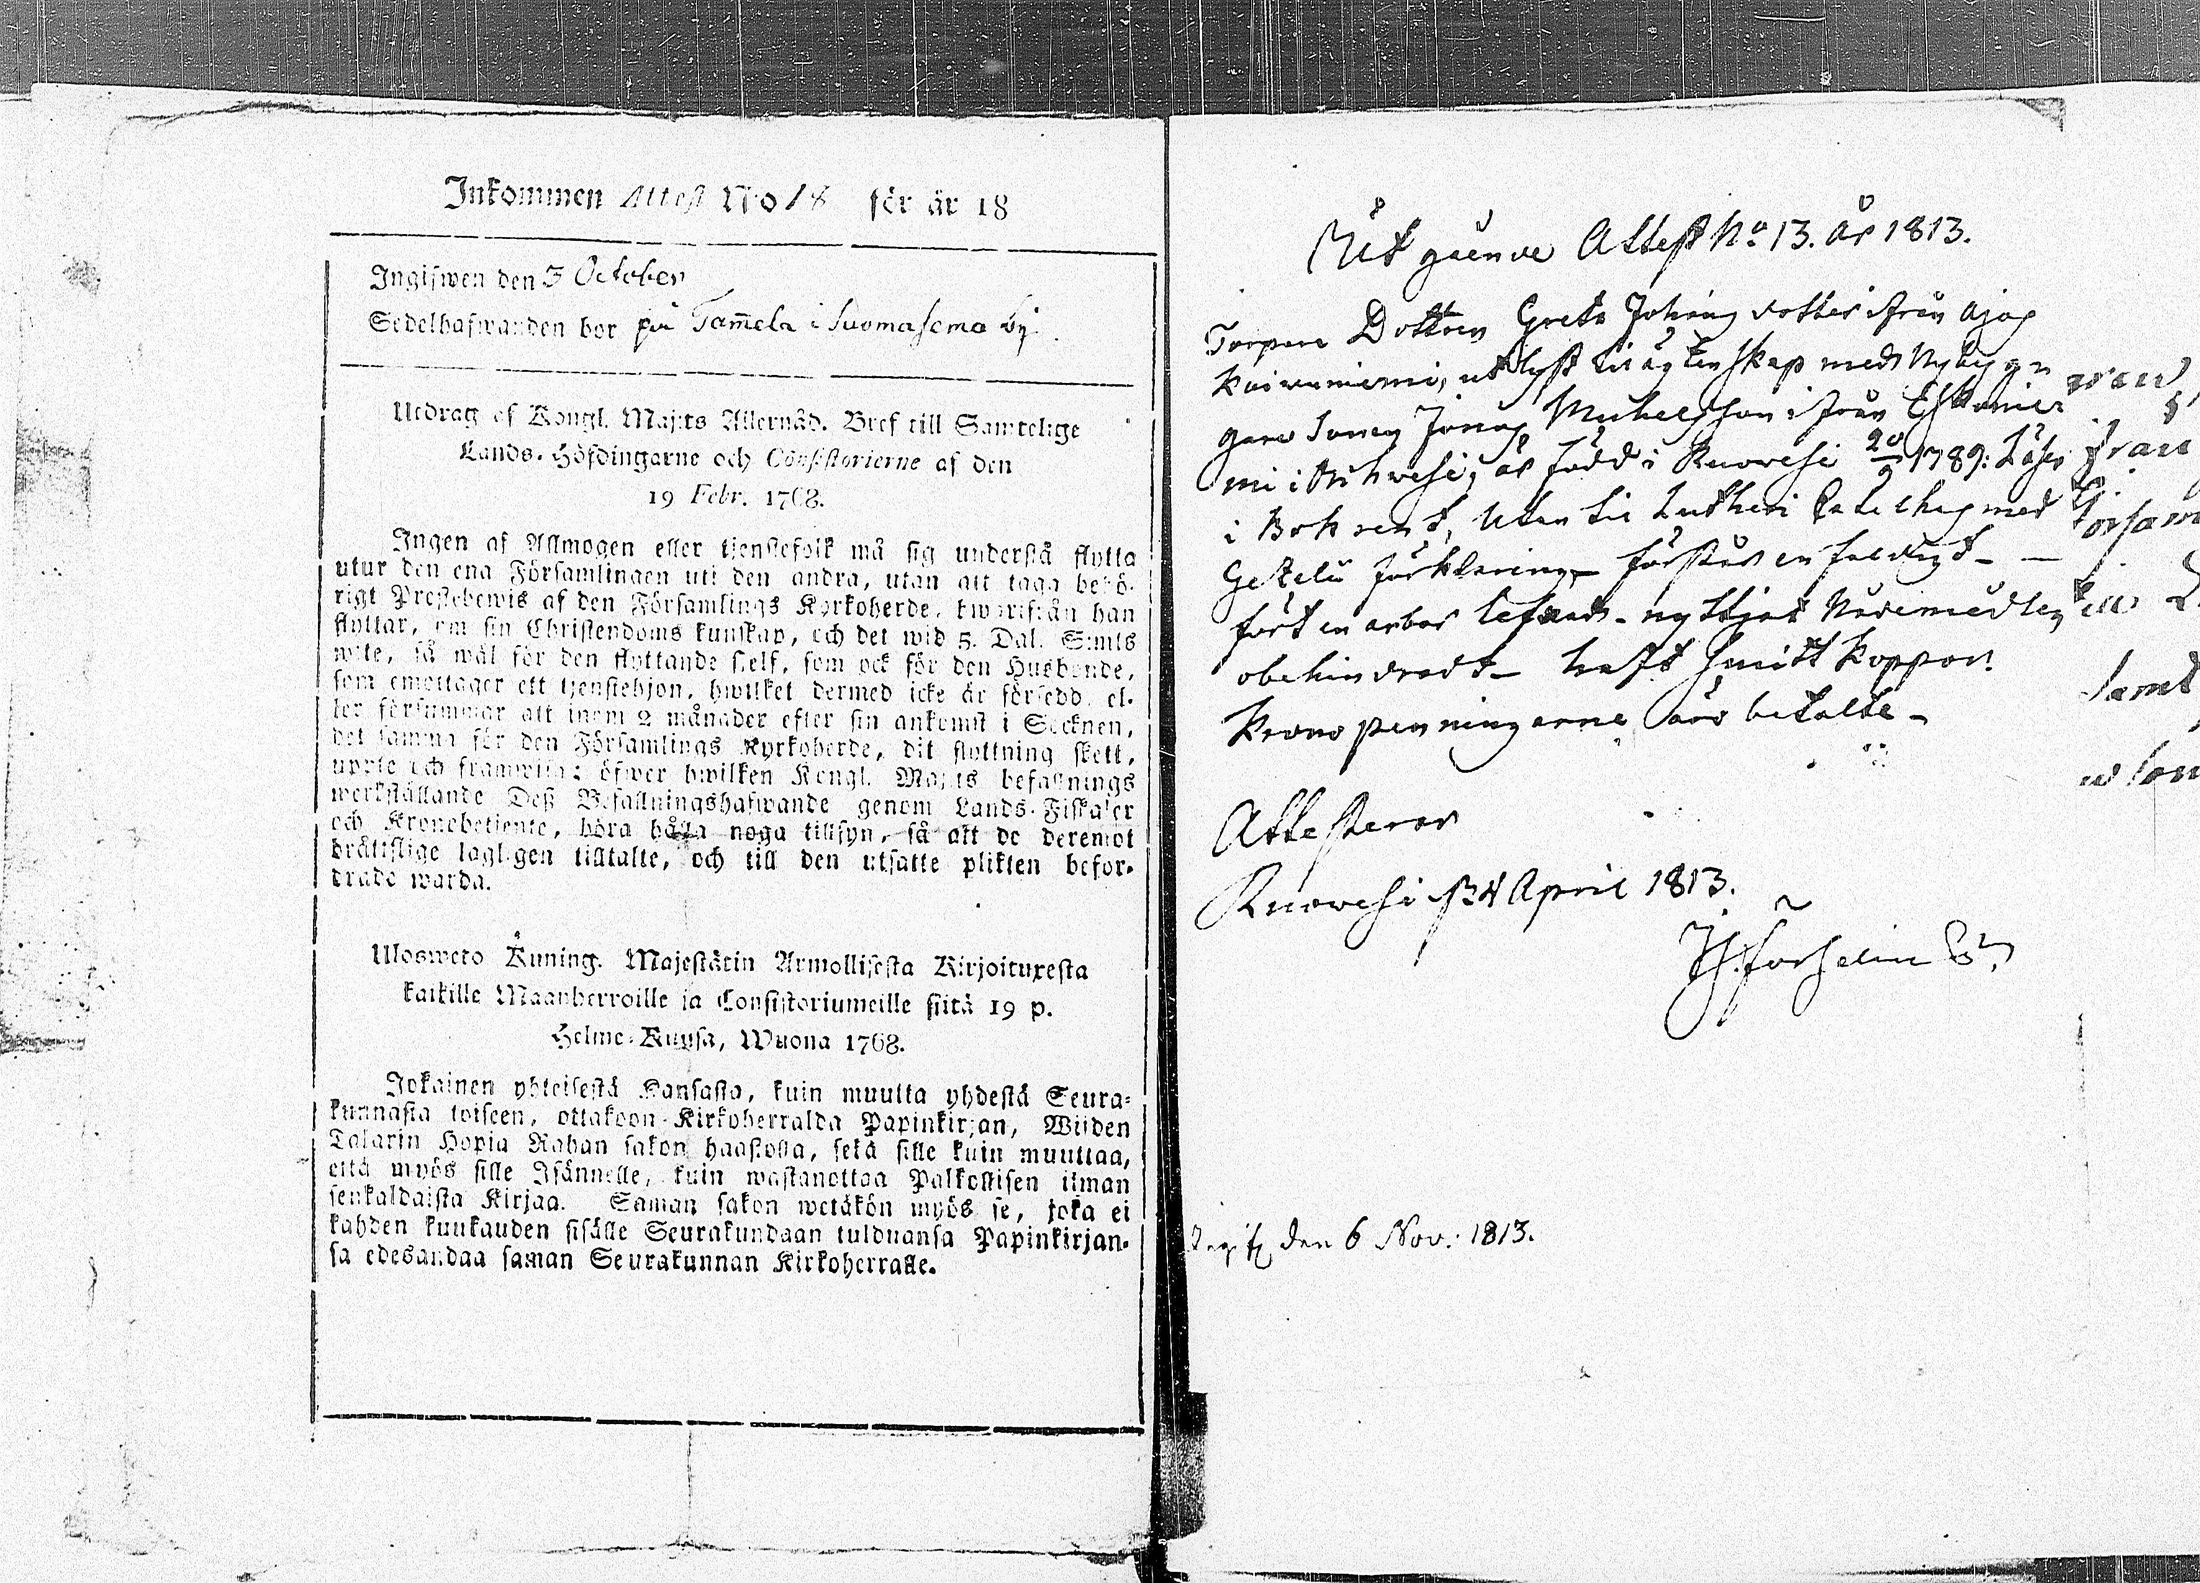 Inkommen Attest No 18 för år 18
Ingifwen den 3 October
Sedelhafwanden bor på Tam̄ela i Suomasema by.
Utdrag af Kongl. Maj:ts Allernåd. Bref till Samtelige
Lands-Höfdingarne och Consistorierne af den
19 Febr. 1768.
Ingen af Allmogen eller tjenstefolk må sig understå flytta
utur den ena Församlingen uti den andra, utan att taga behö-
rigt Prestebewis af den Församlings Kyrkoherde, hwarifrån han
flyttar, om sin Christendoms kunskap, och det wid 5. Dal. S:mts
wite, så wäl för den flyttande sielf, som ock för den Husbonde,
som emottager ett tjenstehjon, hwilket dermed icke är försedd, el-
ler försummar att inom 2 månader efter sin ankomst i Socknen,
det samma för den Församlings Kyrkoherde, dit flyttning skett,
uppte och framwisa: öfwer hwilken Kongl. Maj:ts befallnings
werkställande Deß Befallningshafwande genom Lands-Fiskaler
och Kronobetjente, böra hålla noga tillsyn, så att de deremot
brättslige lagligen tilltalte, och till den utsatte plikten befor-
drade warda.
Ulosweto Kuning. Majestätin Armollisesta Kirjoituxesta
kaikille Maanherroille ja Consistoriumeille siitä 19 p.
Helme-Kuusa, Wuona 1768.
Jokainen yhteisestä Kansasta, kuin muutta yhdestä Seura-
kunnasta toiseen, ottakoon Kirkoherralda Papinkirjan, Wiiden
Talarin Hopia Rahan sakon haastolla, sekä sille kuin muuttaa,
että myös sille Isännelle, kuin wastanottaa Palkollisen ilman
senkaldaista Kirjaa. Saman sakon wetäkön myös se, joka ei
kahden kuukauden sisälle Seurakundaan tulduansa Papinkirjan-
sa edesandaa saman Seurakunnan Kirkoherralle.
Utgående Attest No 13. år 1813.
Torpare Dottren Greta Johans dotter ifrån Ajos
Kaivuniemi, utlyst til ägtenskap med Nybyg
gare Sonen Jonas Michelsson ifrån Eskonie
mi i Äihwesi, är född i Ruowesi 20/9 1789: Läser
i Bok rent, Utan til Lutheri Cateches med
Gezelii förklaring, förstår enfaldigt -
fört en ärbar lefnad - nyttjat Nådemedlen
obehindradt - haft smitt koppor.
Krono penningarne äro betalte -
Attesterar
Ruowesi d. 24 April 1813.
Regist. den 6 Nov: 1813.
från
Försam
samt